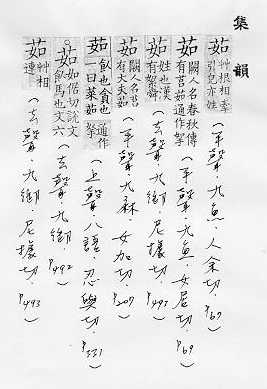 集韻
茹 艸根相牽引皃亦姓
(平聲·九魚·人余切·P67)
茹 闕人名春秋傳有茹通作挐
(平聲·九魚·女居切·P69)
茹 姓也漢有
(去聲·九御·尼據切·P493)
茹 闕人名吕有大夫茹
(平聲·九麻·女加切·P209)
茹 飯也貪也一曰菜茹 通作
(上聲·八語·忍與切·P331)
茹 如倨切說文飤馬也文六
(去聲·九御·P492)
茹 艸相連
(去聲·九御·尼據切·P493)